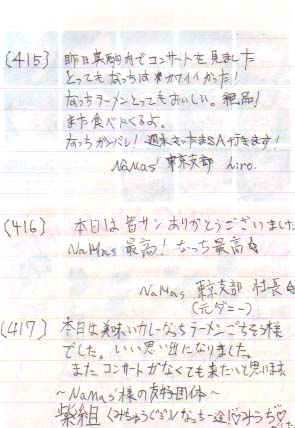 (415) 昨日真駒内でコンサートを見ました
とってもなっちは★カワイイかった!
なっちラーメンとってもおいしい。絶品!
また食べにくるよ。
なっちガンバレ!週末さいたまSA行きます!
NaMas' 東京支部 hiro.
(416) 本日は皆サンありがとうございました
NaMas 最高!なっち最高☆
NaMas 東京支部 村長☆
(元ダニー)
(417) 本日は美味いカレーなちラーメンごちそう様
でした。いい思い出になりました。
また コンサートがなくても来たいと思います
~NaMas'様の友好団体~
紫組〈みちゅうぐみ〉なっち一途♡みうち♡